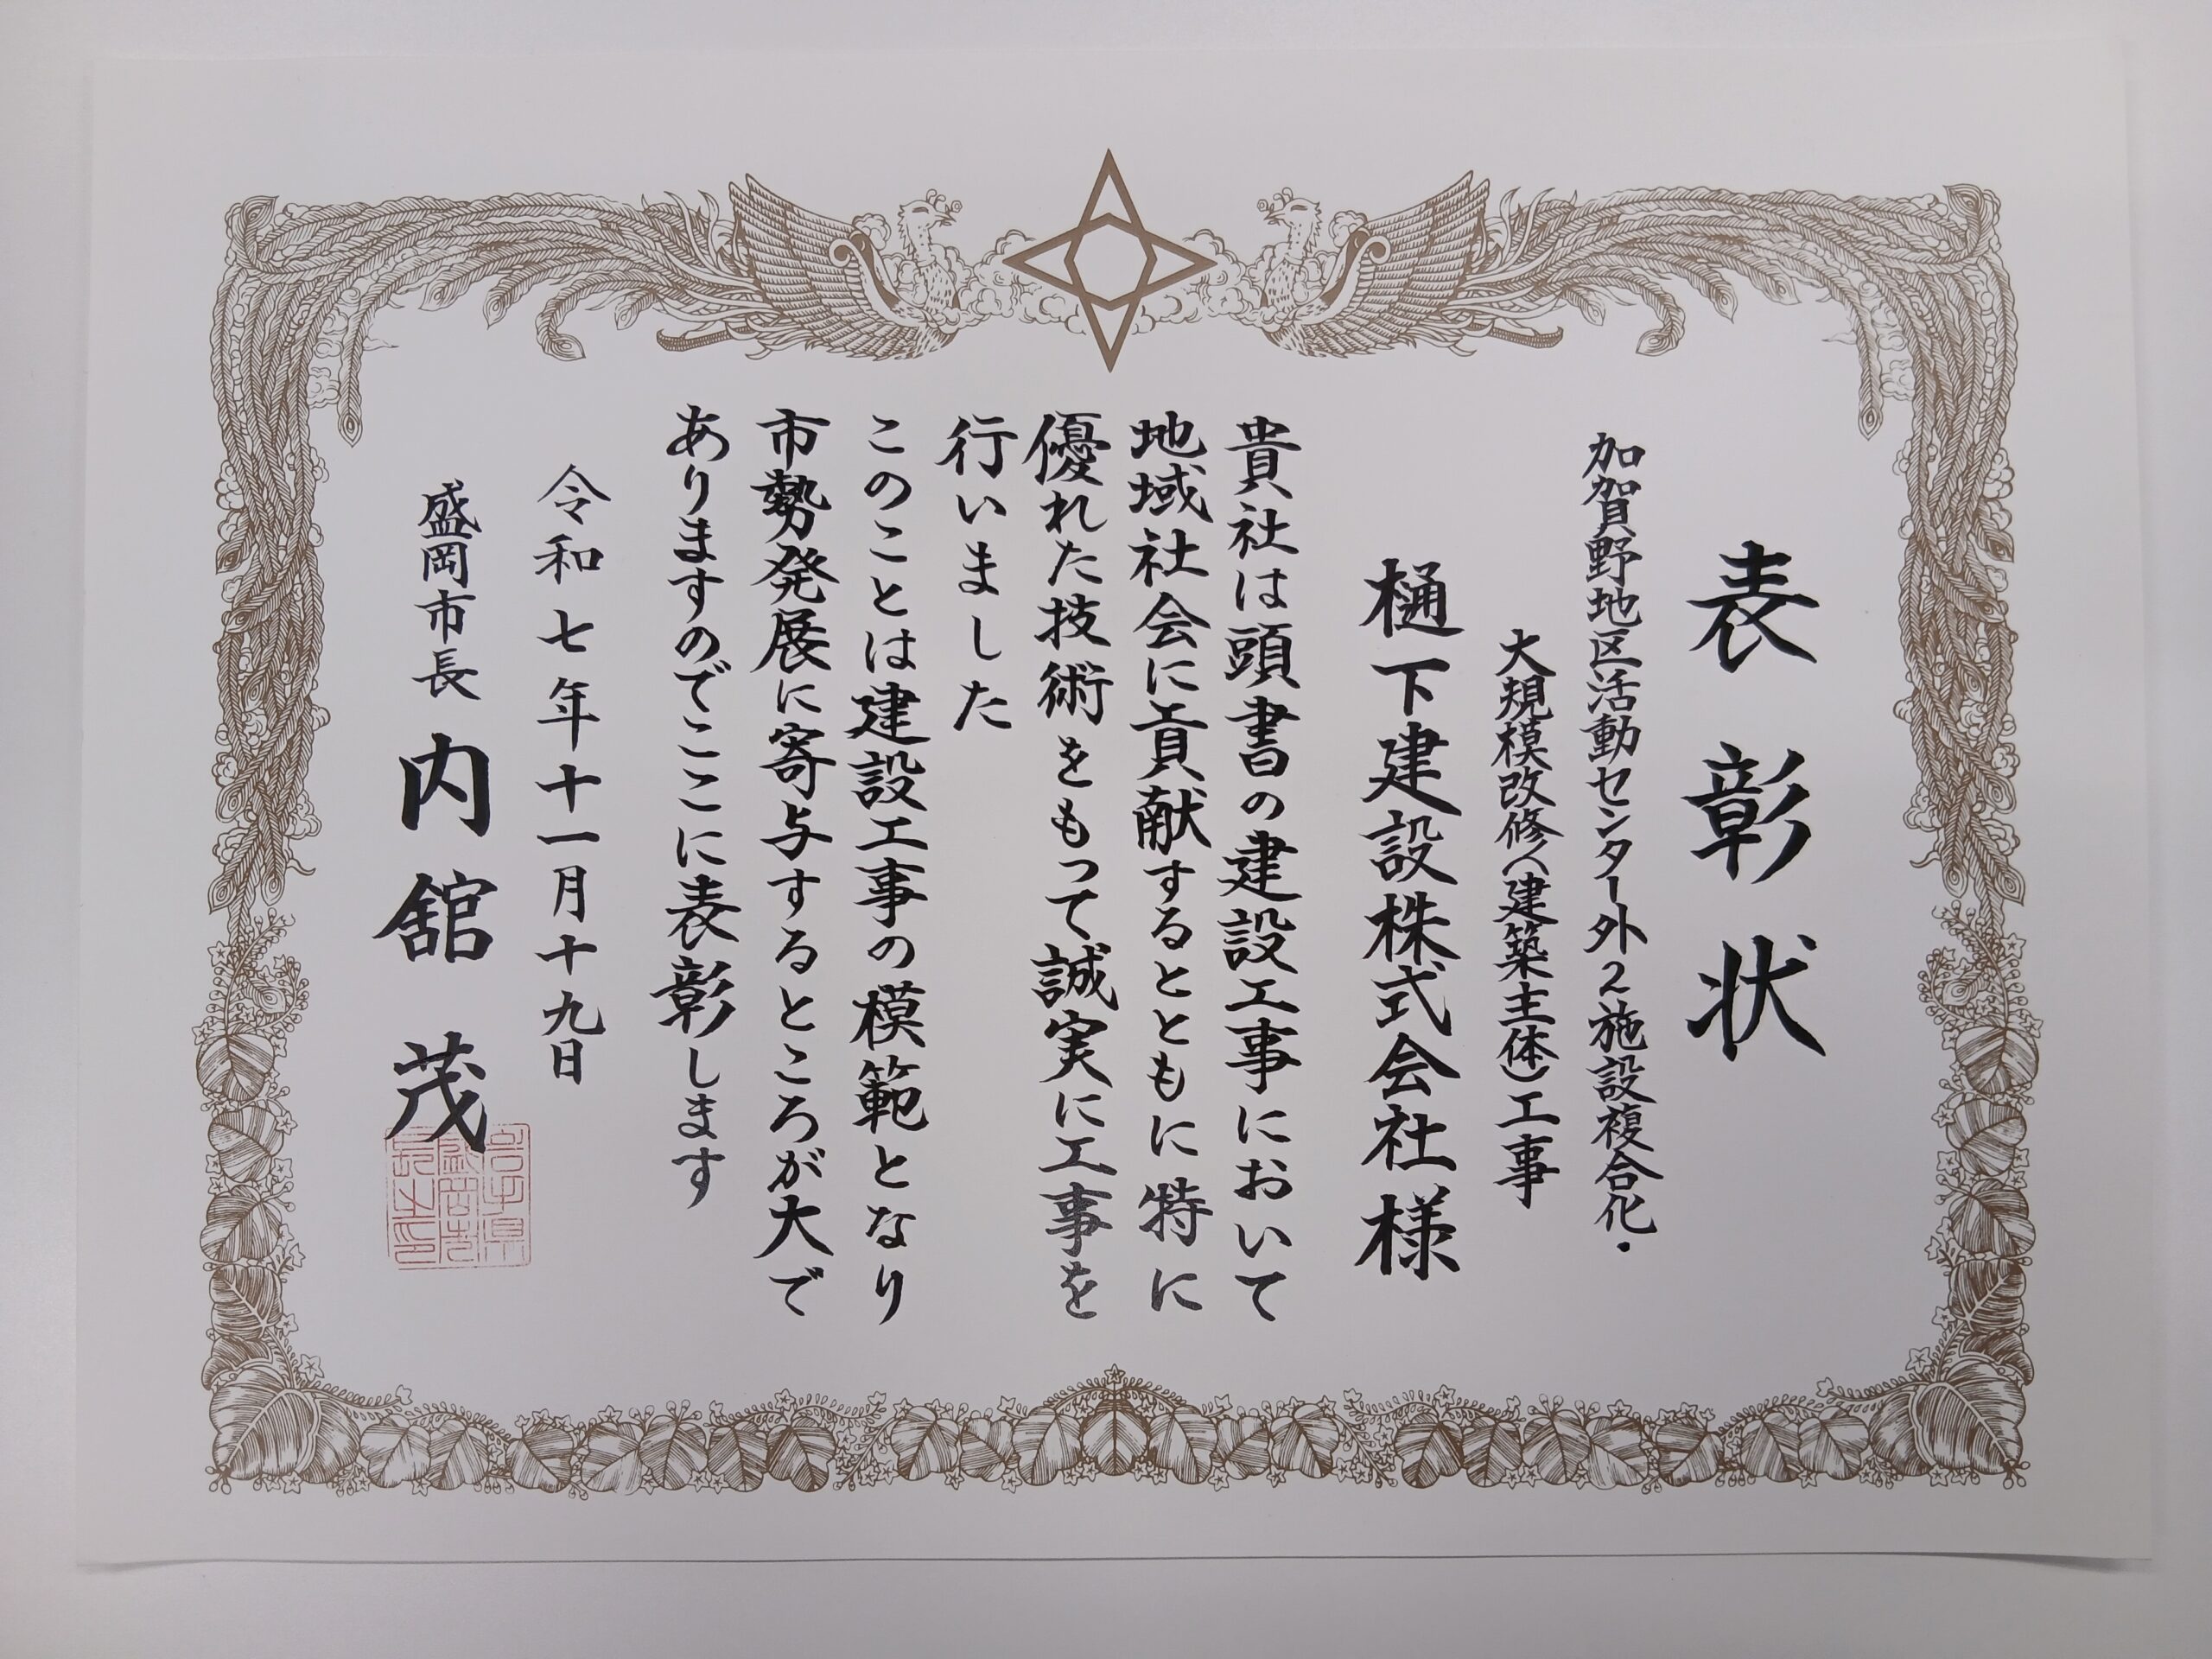 表彰状
加賀野地区活動センター外2施設複合化・
大規模改修(建築主体)工事
樋下建設株式会社様
貴社は頭書の建設工事において
地域社会に貢献するとともに特に
優れた技術をもって誠実に工事を
行いました
このことは建設工事の模範となり
市勢発展に寄与するところが大で
ありますのでここに表彰します
令和七年十一月十九日
盛岡市長 内舘茂
岩手県
盛岡市
長之印